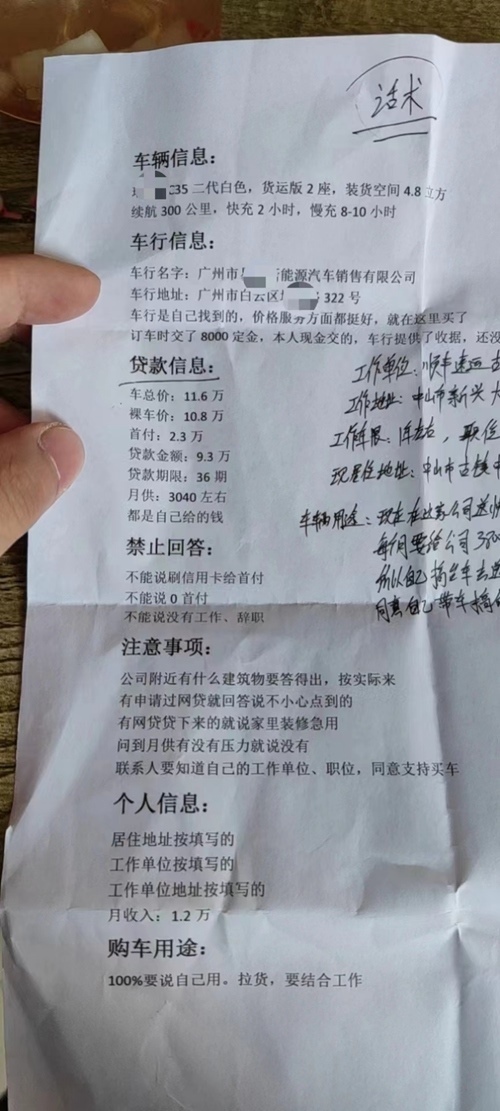 话术
车辆信息:
35 二代白色，货运版 2 座，装货空间 4.8 立方
续航 300 公里，快充 2 小时，慢充 8-10 小时
车行信息:
车行名字：广州市 新能源汽车销售有限公司
车行地址：广州市白云区 322 号
车行是自己找到的，价格服务方面都挺好，就在这里买了
订车时交了 8000 定金，本人现金交的，车行提供了收据，还没
贷款信息:
车总价：11.6 万
裸车价：10.8 万
首付：2.3 万
贷款金额：9.3 万
贷款期限：36 期
月供：3040 左右
都是自己给的钱
工作单位：顺丰速运
工作地址：中山市新兴大
工作年限：左右，职位
现居住地址：中山市古镇
车辆用途：现在在这家公司送
每个月要给公司
所以自己搞台车去送
同意自己带车搞
禁止回答:
不能说刷信用卡给首付
不能说 0 首付
不能说没有工作、辞职
注意事项:
公司附近有什么建筑物要答得出，按实际来
有申请过网贷就回答说不小心点到的
有网贷贷下来的就说家里装修急用
问到月供有没有压力就说没有
联系人要知道自己的工作单位、职位，同意支持买车
个人信息:
居住地址按填写的
工作单位按填写的
工作单位地址按填写的
月收入：1.2 万
购车用途:
100%要说自己用。拉货，要结合工作